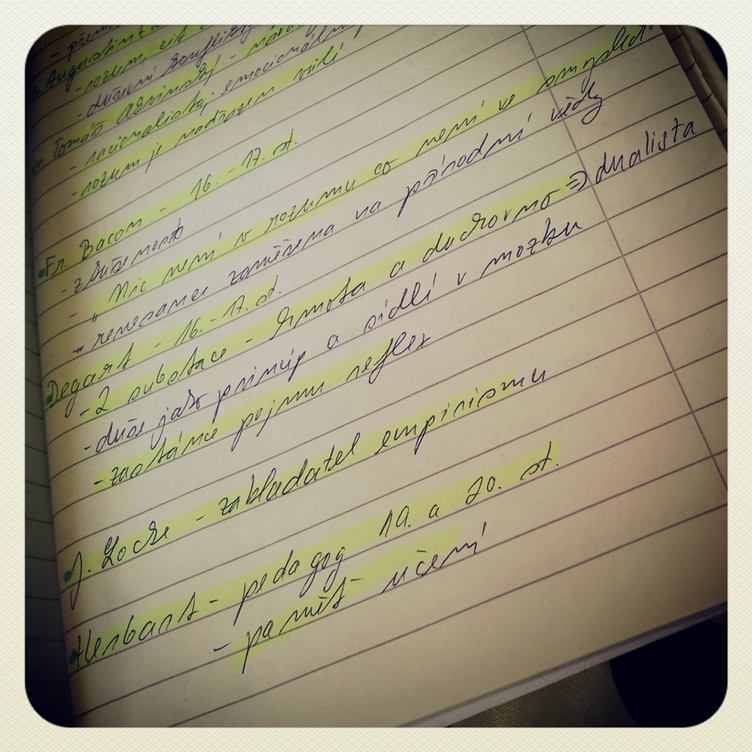 Augustin
- rozum, cit
- duševní konflikty
Tomáš Akvinský -
- racionalista, emocionální
- rozum je nadřazen vůli
Fr. Bacon - 16. - 17. st.
- zkušenost
- "Nic není v rozumu co není ve smyslech
- renesance zaměřena na přírodní vědy
Degart - 16. - 17. st.
- 2 substace - hmota a duchovno => dualista
- duše jako princip a sídlí v mozku
- zastánce pojmu reflex
J. Locke - zakladatel empirismu
Herbart - pedagog 19. a 20. st.
- paměť učení